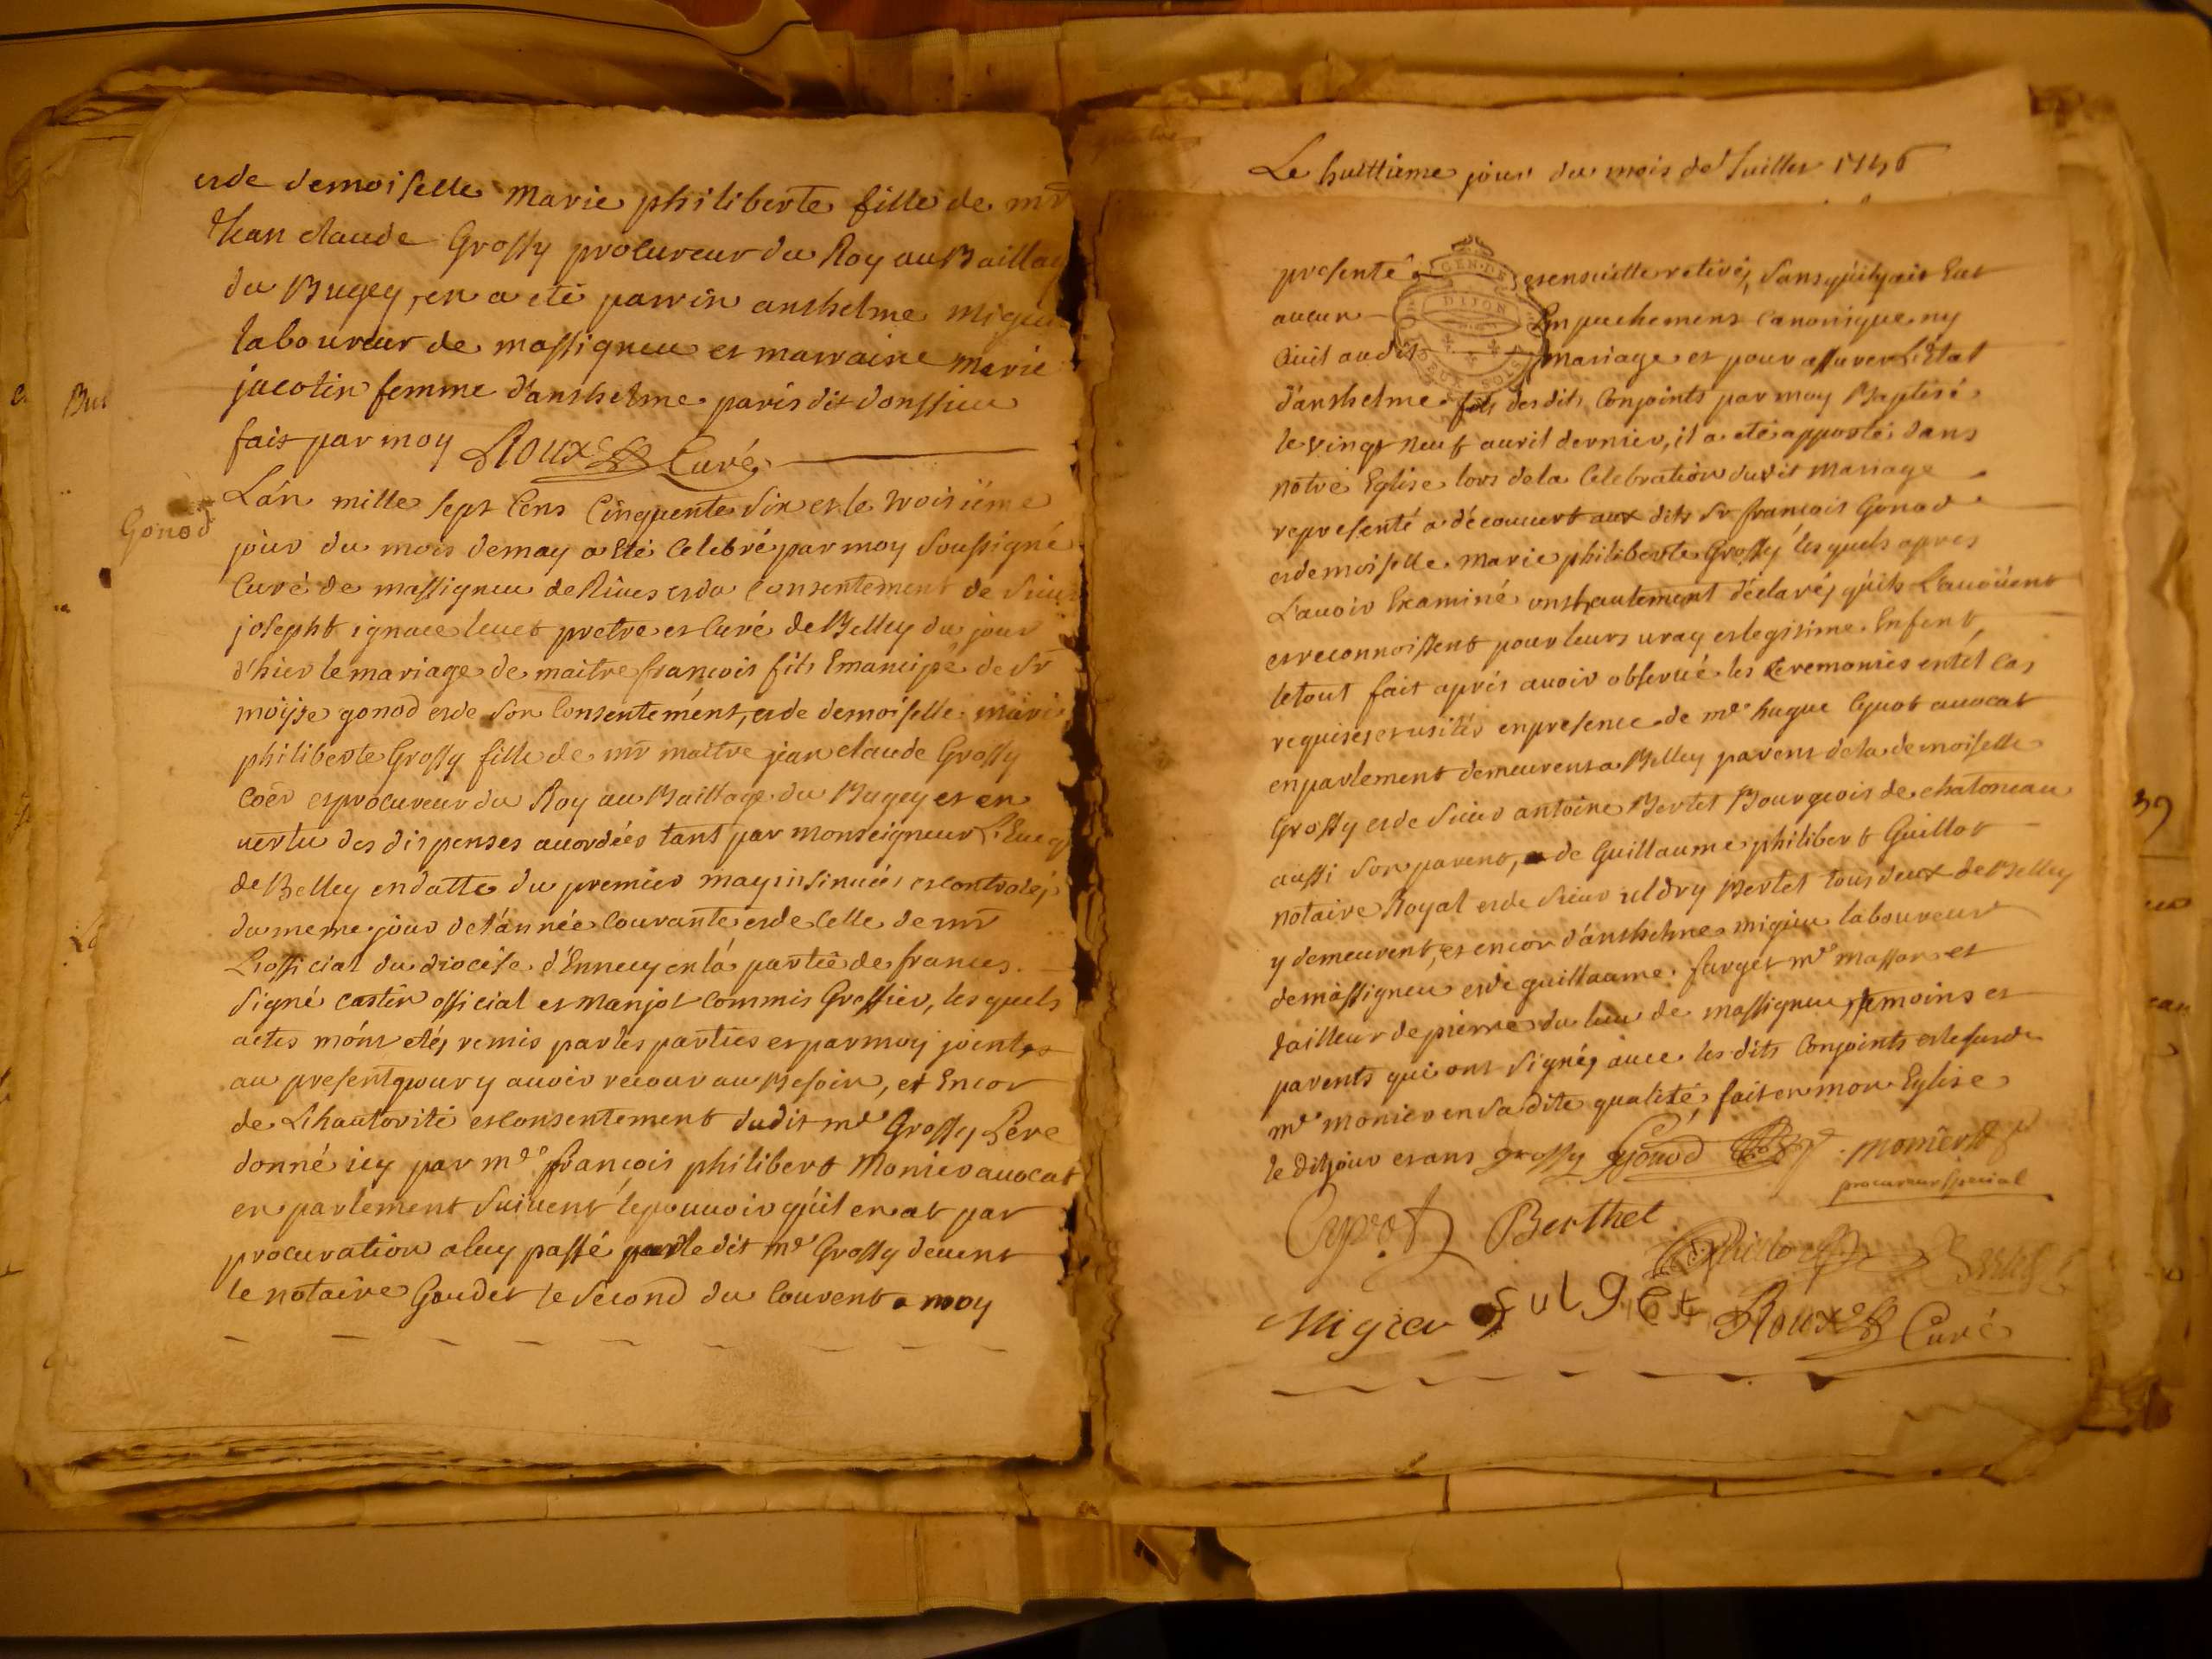 et de demoiselle Marie philiberte fille de mr
Jean claude Grossy procureur du Roy au Baillag
du Bugey, en a eté parrin anthelme migieu
laboureur de massigneu et marraine Marie
jacotin femme d'anthelme paris dit donssieu
fait par moy Roux Curé
Gonod
L'an mille sept Cens Cinquente Six et le troisiéme
jour du mois de may a Eté Celebré par moy Soussigné
Curé de massigneu de Rives et du Consentement de Sieur
josepht ignace levet pretre et Curé de Belley du jour
d'hier le mariage de maitre françois fils Emancipé de Sr
moyse gonod et de Son Consentement, et de demoiselle marie
philiberte Grossy fille de mr maitre jean claude Grossy
Coër et procureur du Roy au Baillage du Bugey et en
vertu des dispenses accordées tant par Monseigneur L'Eveq
de Belley en datte du premier may insinuées et controlés
du meme jour de l'année Courante et de Celle de mr
L'official du diocese d'Ennecy en la partie de france
Signé castin official et Manjot commis Greffier, les quels
actes m'ont etés remis par les parties et par moy joints
au present pour y avoir recour au Besoin, et Encor
de L'hautorité et Consentement dudit me Grossy Pere
donné icy par me françois philibert Monier avocat
en parlement Suivent le pouvoir qu'il en at par
procuration a luy passé par le dit me Grossy devent
le notaire Goudet le Second du Courent a moy
Le huittieme jour du mois de Juillet 1756
presenté et ensuitte retirés, Sans qu'ily ait Eut
aucun Empechement Canonique ny
Civil audit mariage et pour assurer L'Etat
d'anthelme fils desdits Conjoints par moy Baptisé
le vingt neuf avril dernier, il a eté apporté dans
notre Eglise lors de la Celebration dudit Mariage
representé a découvert aux dits Sr françois Gonod
et demoiselle Marie philiberte Grossy les quels apres
L'avoir Examiné ont hautement déclarés qu'ils L'avoüent
et reconnoissent pour leurs vray et legitime Enfent
le tout fait aprés avoir observé les Ceremonies en tel Cas
requises et usités en presence de me hugue Cyvot avocat
en parlement demeurent a Belley parent de la demoiselle
Grossy et de Sieur antoine Bertet Bourgeois de chatoneau
aussi Son parent, de Guillaume philibert Guillot
notaire Royal et de Sieur uldry Bertet tous deux de Belley
y demeurent, et encor d'anthelme migieu laboureur
de massigneu et de guillaume surget me masson et
tailleur de pierre du lieu de massigneu temoins et
parents qui ont Signés avec les dits Conjoints et le susdit
me monier en Sa dite qualité, fait en mon Eglise
le dit jour et ans Grossy Gonod Monier
procureur Special
Cyvot Berthet Guillot Bertet
Migieu Sulget Roux Curé
39